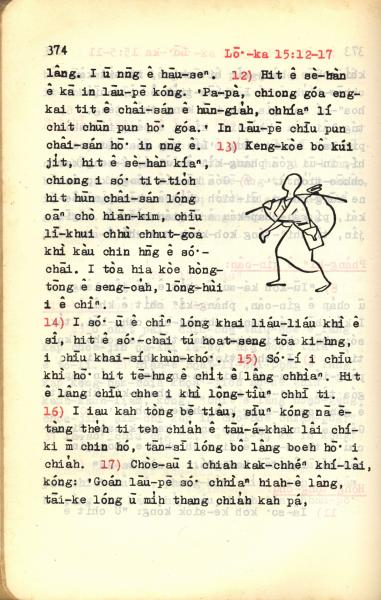 374 Lō͘-ka 15:12-17
lâng. I ū nn̄g ê hāu-seⁿ. 12) Hit ê sè-hàn
ê kā in lāu-pē kóng. 'Pa-pà, chiong góa eng-
kai tit ê châi-sán ê hūn-gia̍h, chhíaⁿ lí
chit chūn pun hō͘ góa.' In lāu-pē chīu pun
châi-sán hō͘ in nn̄g ê. 13) Keng-kòe bô kúi
ji̍t, hit ê sè-hàn kíaⁿ,
chiong i só͘ tit-tio̍h
hit hūn châi-sán lóng
oāⁿ chò hiān-kim, chīu
lī-khui chhù chhut-gōa
khì kàu chin hn̄g ê só͘-
chāi. I tòa hia kòe hòng-
tōng ê seng-oa̍h, lōng-hùi
i ê chîⁿ.
14) I só͘ ū ê chîⁿ lóng khai liáu-liáu khì ê
sî, hit ê só͘-chāi tú hoat-seng tōa ki-hng,
i chīu khai-sí khùn-khó͘. 15) Só͘-í i chīu
khì hō͘ hit tē-hng ê chi̍t ê lâng chhìaⁿ. Hit
ê lâng chīu chhe i khì lóng-tîuⁿ chhī ti.
16) I iau kah tòng bē tiâu, sīuⁿ kóng nā ē-
tàng the̍h ti teh chia̍h ê tāu-á-khak lâi chí-
ki m̄ chin hó, tān-sī lóng bô lâng boeh hō͘ i
chia̍h. 17) Chòe-āu i chiah kak-chhéⁿ khí-lâi,
kóng: 'Goán lāu-pē só͘ chhìaⁿ hiah-ê lâng,
tāi-ke lóng ū mi̍h thang chia̍h kah pá,